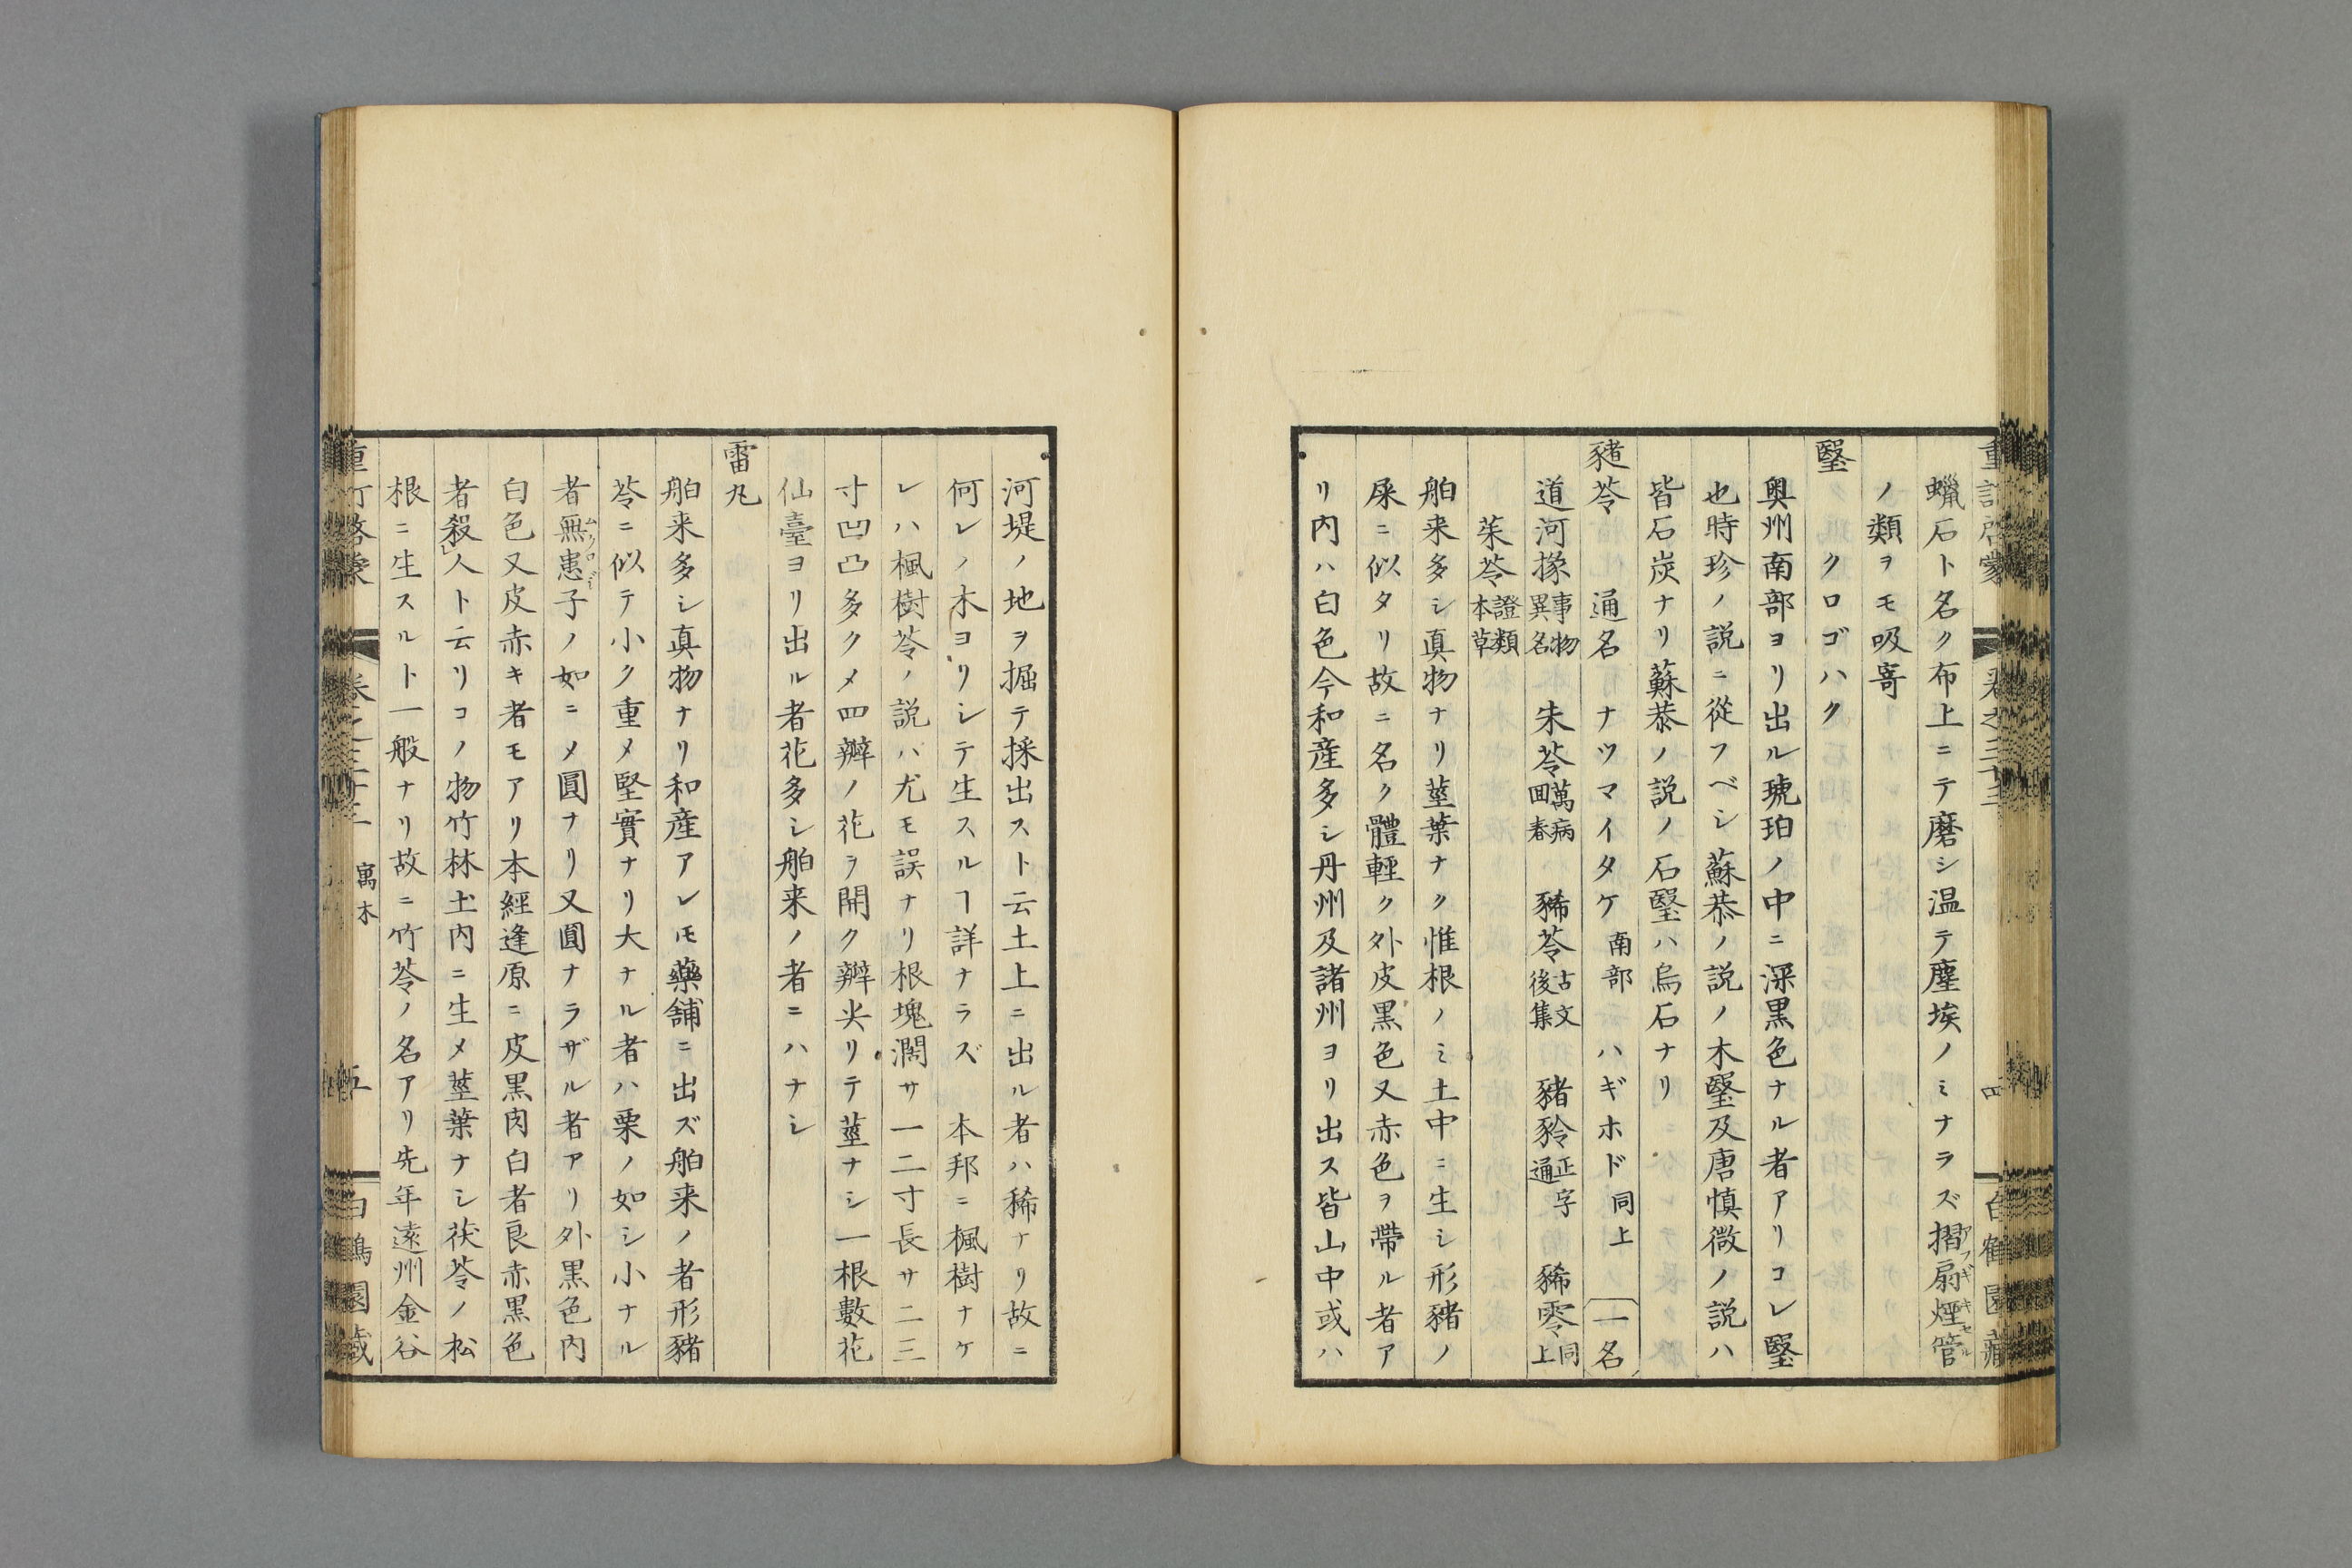 蠟石ト名ク布上ニテ磨シ温テ塵埃ノミナラズ摺扇煙管
アフギキセル
ノ類ヲモ吸寄
瑿 クロゴハク
奥州南部ヨリ出ル琥珀ノ中ニ深黒色ナル者アリコレ瑿
也時珍ノ説ニ從フベシ蘇恭ノ説ノ木瑿及唐慎微ノ説ハ
皆石炭ナリ蘇恭ノ説ノ石瑿ハ烏石ナリ
豬苓 通名 ナツマイタケ南部 ハギホド同上 一名
道河㨾事物異名 朱苓萬病囬春 豨苓古文後集 豬㺵正字通 豨零同上
茱苓證類本草
舶来多シ真物ナリ莖葉ナク惟根ノミ土中ニ生シ形豬ノ
屎ニ似タリ故ニ名ク體輕ク外皮黒色又赤色ヲ帶ル者ア
リ内ハ白色今和産多シ丹州及諸州ヨリ出ス皆山中或ハ
河堤ノ地ヲ掘テ採出スト云土上ニ出ル者ハ稀ナリ故ニ
何レノ木ヨリシテ生スルヿ詳ナラズ 本邦ニ楓樹ナケ
レハ楓樹苓ノ説ハ尤モ誤ナリ根塊濶サ一二寸長サ二三
寸凹凸多クメ四瓣ノ花ヲ開ク瓣尖リテ莖ナシ一根數花
仙臺ヨリ出ル者花多シ舶来ノ者ニハナシ
雷丸
舶来多シ真物ナリ和産アレ𪜈藥舗ニ出ズ舶来ノ者形豬
苓ニ似テ小ク重メ堅實ナリ大ナル者ハ栗ノ如シ小ナル
者無患子ノ如ニメ圓ナリ又圓ナラザル者アリ外黒色内
ムクロジ
白色又皮赤キ者モアリ本經逢原ニ皮黒肉白者良赤黒色
者殺人ト云リコノ物竹林土内ニ生メ莖葉ナシ茯苓ノ松
根ニ生スルト一般ナリ故ニ竹苓ノ名アリ先年遠州金谷
寓木